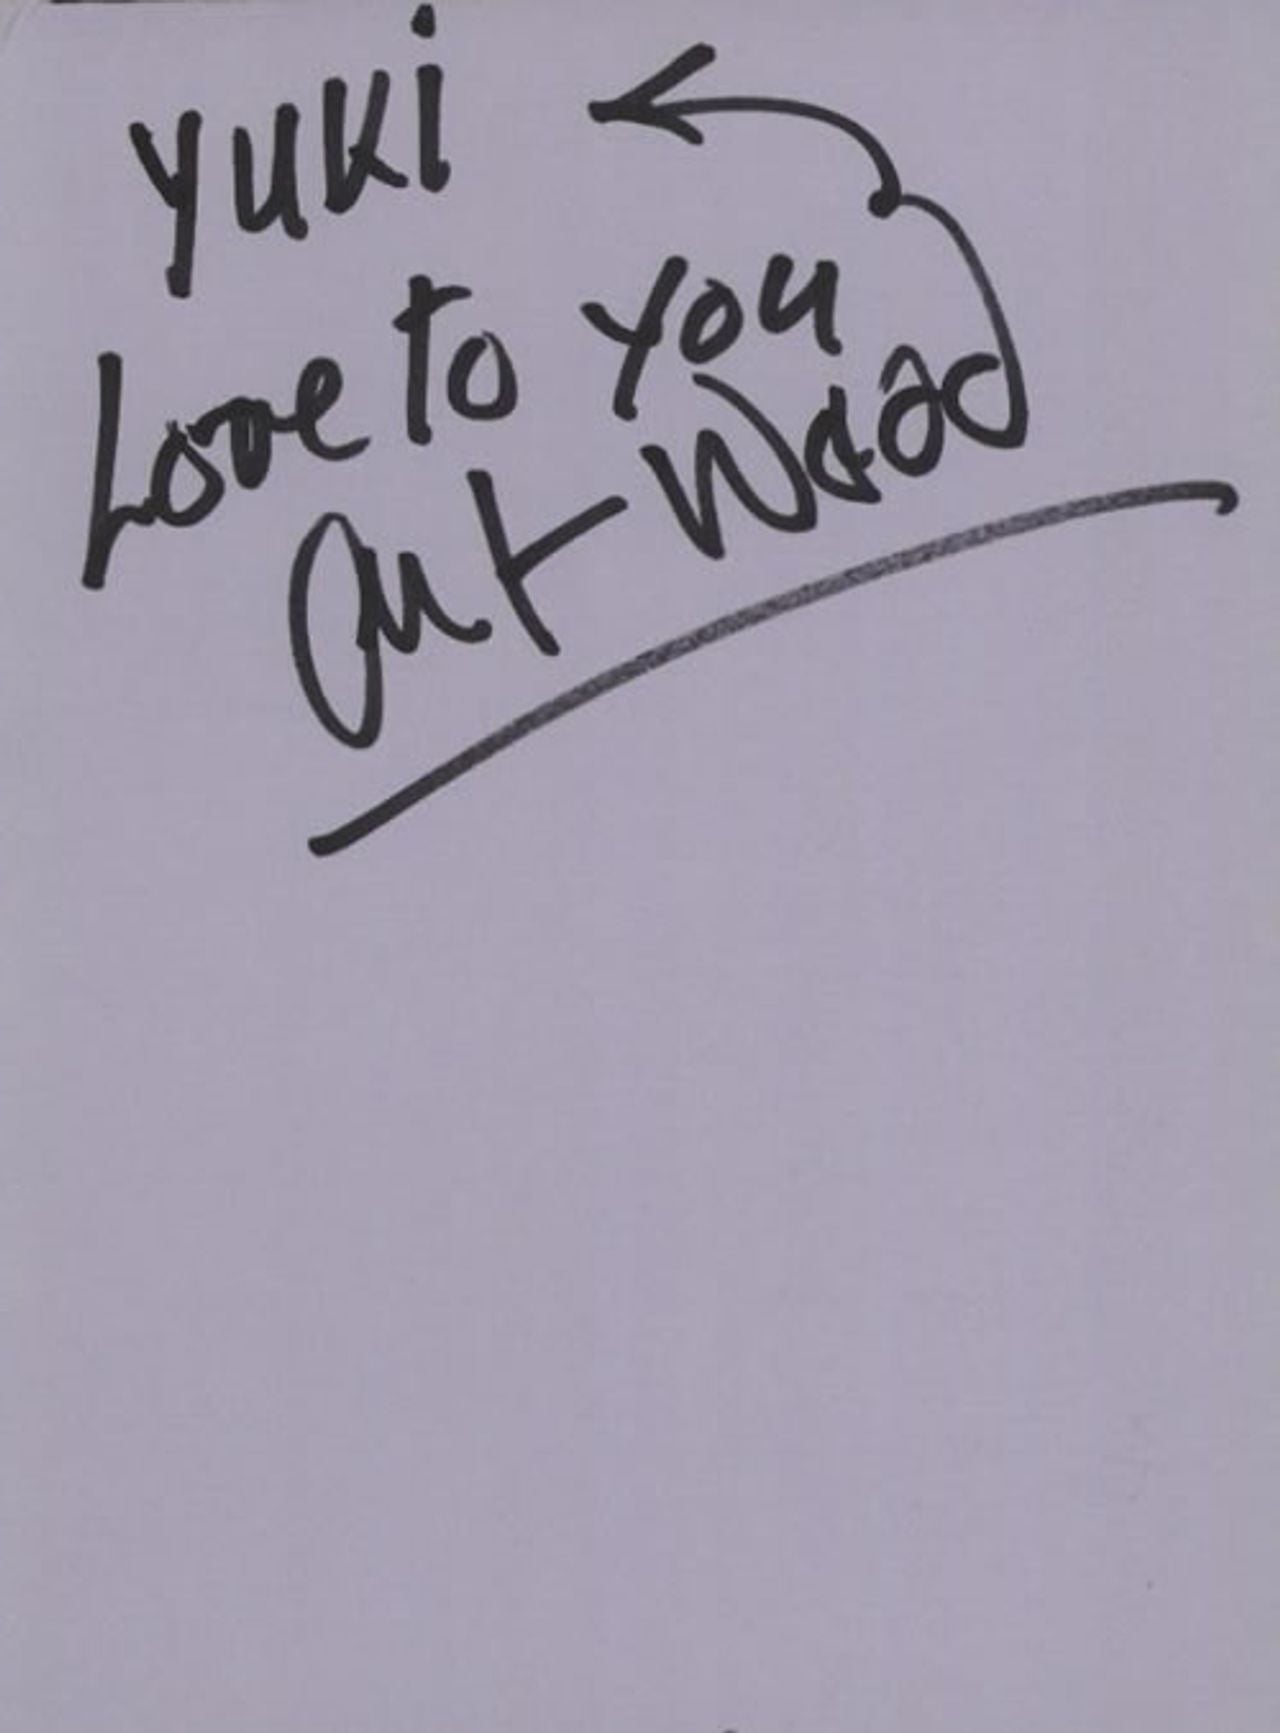 Yuki
Love to you
Art Wood